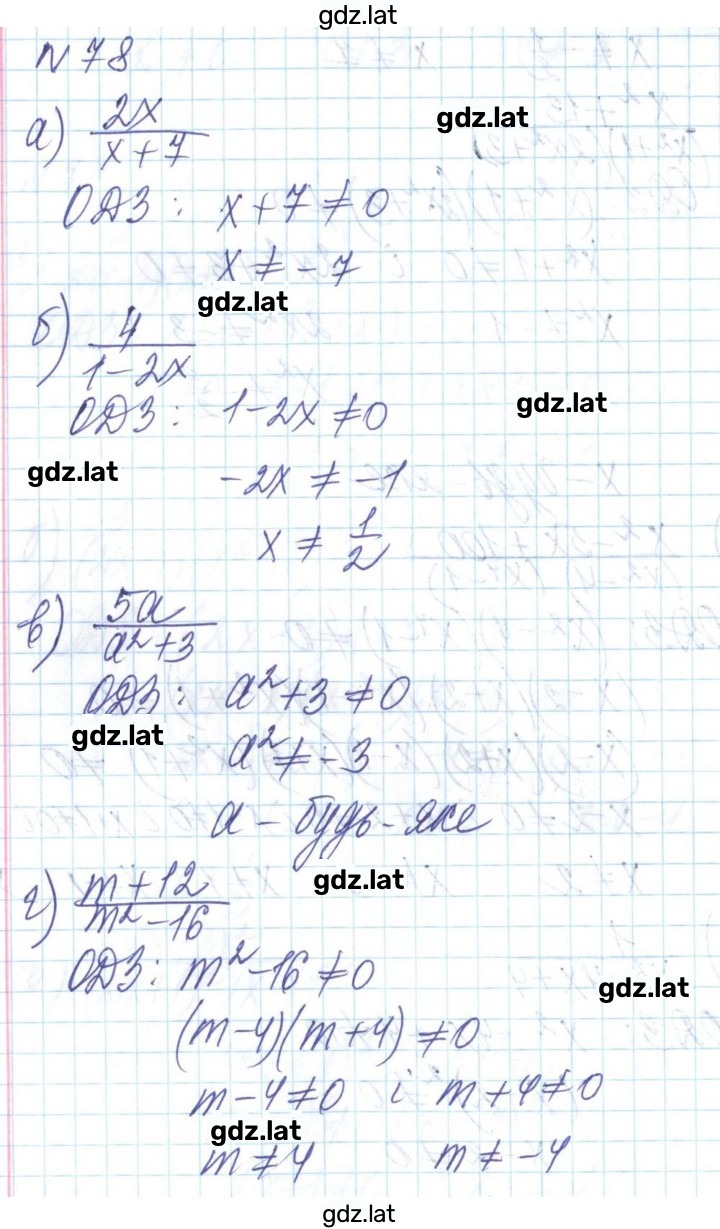 gdz.lat
N 78
а) 2x / x + 7
gdz.lat
ОДЗ: x + 7 ≠ 0
x ≠ - 7
gdz.lat
б) 4 / 1 - 2x
ОДЗ: 1 - 2x ≠ 0
gdz.lat
gdz.lat
-2x ≠ -1
x ≠ 1/2
в) 5a / a² + 3
ОДЗ: a² + 3 ≠ 0
gdz.lat
a² ≠ - 3
a - будь-яке
gdz.lat
г) m + 12 / m² - 16
ОДЗ: m² - 16 ≠ 0
gdz.lat
(m - 4)(m + 4) ≠ 0
m - 4 ≠ 0 і m + 4 ≠ 0
gdz.lat
m ≠ 4 m ≠ -4
gdz.lat